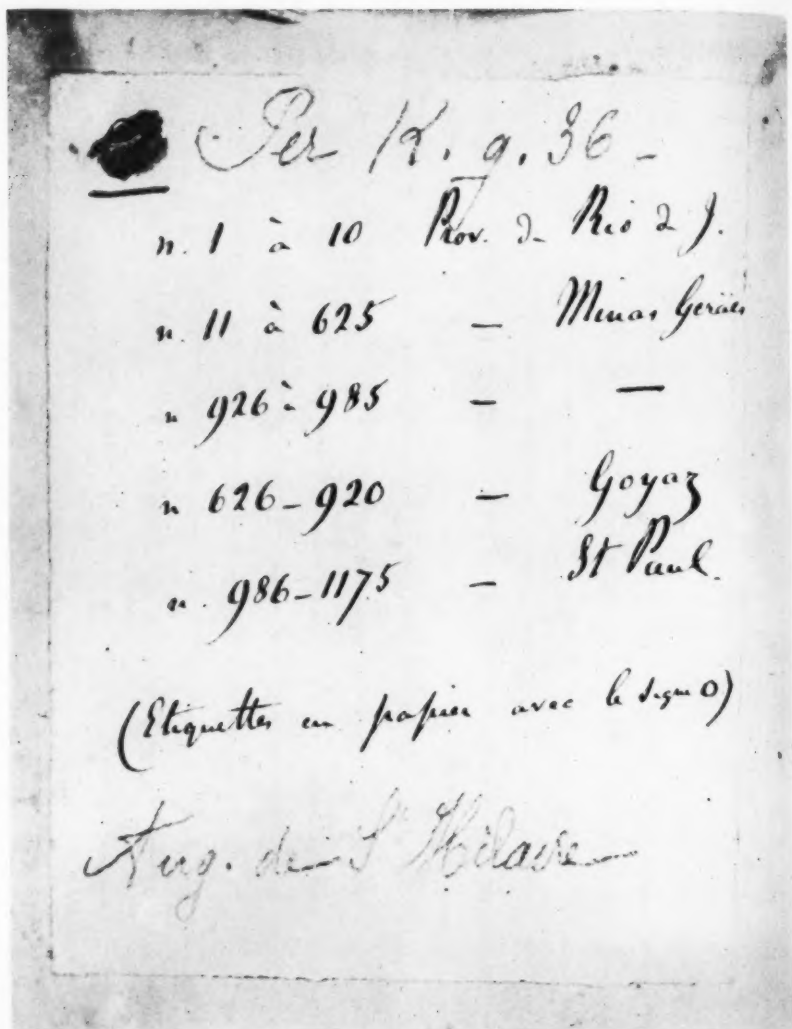 Per K. g. 36 -
n. 1 à 10 Prov. de Rio de J.
n. 11 à 625 — Minas Geraes
n 926 à 985 — —
n 626-920 — Goyaz
n. 986-1175 — St Paul.
(Etiquettes en papier avec le signe O)
Aug. de St Hilaire